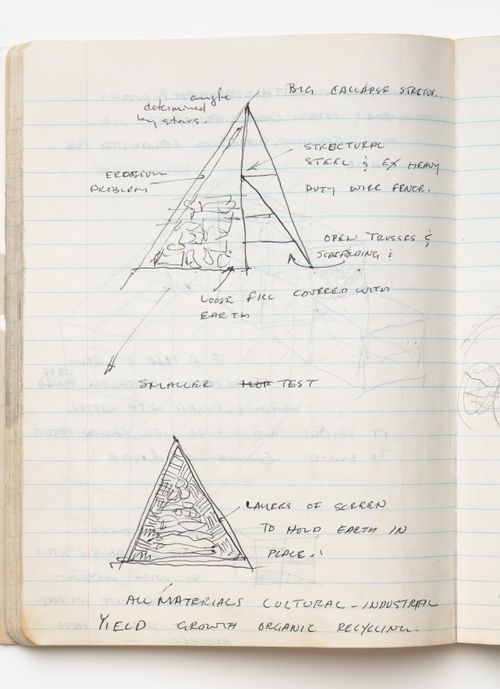 BIG COLLAPSE STRUCTR.
angle
determined
by stars.
STRUCTURAL
STEEL & EX HEAVY
DUTY WIRE FENCE.
EROSION
PROBLEM
OPEN TRUSSES &
SCAFFOLDING :
LOOSE FILL COVERED WITH
EARTH
SMALLER TEST
LAYERS OF SCREEN
TO HOLD EARTH IN
PLACE.
ALL MATERIALS CULTURAL - INDUSTRIAL
YIELD GROWTH ORGANIC RECYCLING.